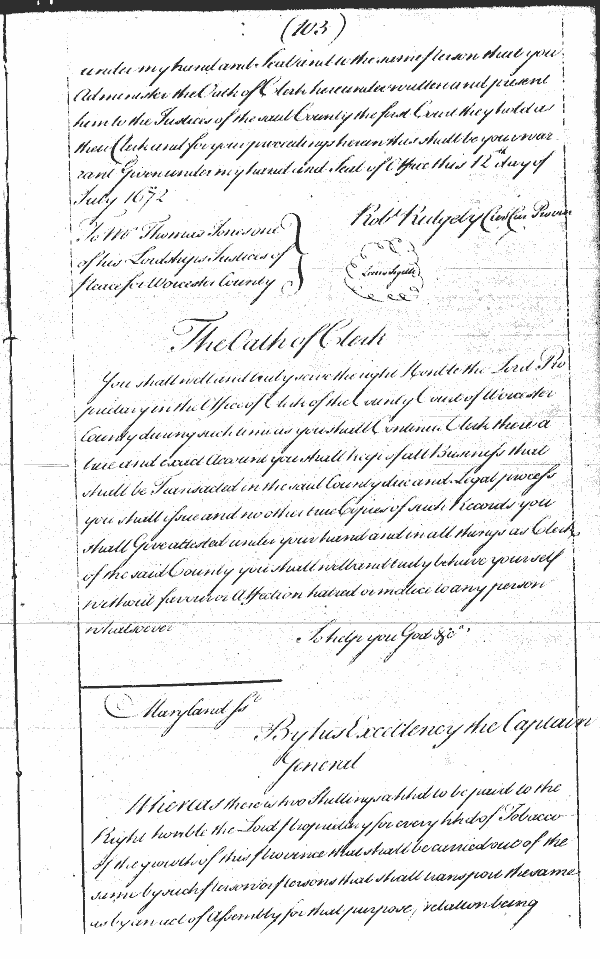 (103)
under my hand and Seal and to the same person that you
Administer the Oath of Clerk hereunder written and present
him to the Justices of the said County the first Court they hold as
their Clerk and for your proceedings herein this shall be your war
rant Given under my hand and Seal of Office this 12th day of
July 1672
Robt Ridgely
To Mr Thomas Jones one
of his Lordships Justices of
Peace for Worcester County
Locus Sigilli
The Oath of Clerk
You shall well and truly serve the right Honble the Lord Pro
prietary in the Office of Clerk of the County Court of Worcester
County during such time as you shall Continue Clerk there a
true and exact Account you shall keep of all Business that
shall be Transacted in the said County due and Legal process
you shall issue and no other true Copies of such Records you
shall Give attested under your hand and in all things as Clerk
of the said County you shall well and truly behave yourself
without favour or Affection hatred or malice to any person
whatsoever
So help you God &c
Maryland Sst
By his Excellency the Captain
General
Whereas there is two Shillings to be paid to the
Right honble the Lord Proprietary for every hhd of Tobacco
of the growth of this Province that shall be carried out of the
same by such Person or Persons that shall transport the same
as by an act of Assembly for that purpose, relation being